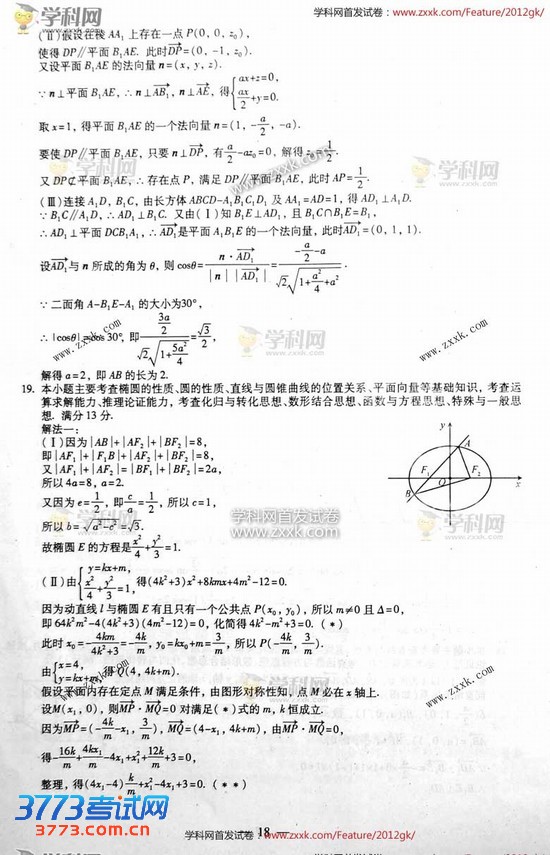 学科网首发试卷：www.zxxk.com/Feature/2012gk/
(Ⅱ)假设在棱 AA₁ 上存在一点 P(0, 0, z₀),
使得 DP∥平面 B₁AE. 此时DP→=(0, -1, z₀).
又设平面 B₁AE 的法向量 n=(x, y, z).
∵ n⊥平面 B₁AE, ∴ n⊥AB₁→, n⊥AE→, 得{ax+z=0, ax/2+y=0.
取 x=1, 得平面 B₁AE 的一个法向量 n=(1, -a/2, -a).
要使 DP∥平面 B₁AE, 只要 n⊥DP→, 有a/2-az₀=0, 解得 z₀=1/2.
又 DP⊄平面 B₁AE, ∴ 存在点 P, 满足 DP∥平面 B₁AE, 此时 AP=1/2.
(Ⅲ)连接 A₁D, B₁C, 由长方体 ABCD-A₁B₁C₁D₁ 及 AA₁=AD=1, 得 AD₁⊥A₁D.
∵ B₁C∥A₁D, ∴ AD₁⊥B₁C. 又由(Ⅰ)知 B₁E⊥AD₁, 且 B₁C∩B₁E=B₁,
∴ AD₁⊥平面 DCB₁A₁, ∴ AD₁→是平面 A₁B₁E 的一个法向量, 此时AD₁→=(0, 1, 1).
设AD₁→与 n 所成的角为 θ, 则 cosθ=n·AD₁→/(|n||AD₁→|)=(-a/2-a)/(√2√(1+a²/4+a²)).
∵ 二面角 A-B₁E-A₁ 的大小为30°,
∴ |cosθ|=cos 30°, 即(3a/2)/(√2√(1+5a²/4))=√3/2,
解得 a=2, 即 AB 的长为 2.
19. 本小题主要考查椭圆的性质、圆的性质、直线与圆锥曲线的位置关系、平面向量等基础知识, 考查运
算求解能力、推理论证能力, 考查化归与转化思想、数形结合思想、函数与方程思想、特殊与一般思
想. 满分 13 分.
解法一：
(Ⅰ)因为|AB|+|AF₂|+|BF₂|=8,
即|AF₁|+|F₁B|+|AF₂|+|BF₂|=8,
又|AF₁|+|AF₂|=|BF₁|+|BF₂|=2a,
所以 4a=8, a=2.
又因为 e=1/2, 即c/a=1/2, 所以 c=1,
所以 b=√(a²-c²)=√3.
故椭圆 E 的方程是x²/4+y²/3=1.
y
A
F₁
O
F₂
x
B
(Ⅱ)由{y=kx+m, x²/4+y²/3=1, 得(4k²+3)x²+8kmx+4m²-12=0.
因为动直线 l 与椭圆 E 有且只有一个公共点 P(x₀, y₀), 所以 m≠0 且 Δ=0,
即 64k²m²-4(4k²+3)(4m²-12)=0, 化简得 4k²-m²+3=0. (*)
此时 x₀=-4km/(4k²+3)=-4k/m, y₀=kx₀+m=3/m, 所以 P(-4k/m, 3/m).
由{x=4, y=kx+m, 得 Q(4, 4k+m).
假设平面内存在定点 M 满足条件, 由图形对称性知, 点 M 必在 x 轴上.
设M(x₁, 0), 则MP→·MQ→=0 对满足(*)式的 m, k 恒成立.
因为MP→=(-4k/m-x₁, 3/m), MQ→=(4-x₁, 4k+m), 由MP→·MQ→=0,
得-16k/m+4kx₁/m-4x₁+x₁²+12k/m+3=0,
整理, 得(4x₁-4)k/m+x₁²-4x₁+3=0. (**)
— 18 —
3773考试网
www.3773.com.cn
学科网首发试卷：www.zxxk.com/Feature/2012gk/
学科网
www.zxxk.com
学科网首发试卷
www.zxxk.com